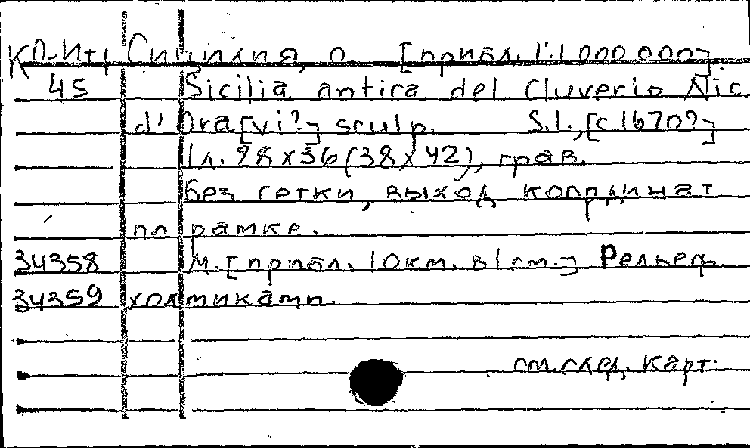 КП-Ит, Сицилия, о. [прибл. 1:1 000 000].
45 Sicilia antica del Cluverio Nic.
d' Ora[vi?] sculp. S.l., [c 1670?]
1 л. 28 x 36 (38 x 42), грав.
без сетки, выход координат
по рамке.
34358 М. [прибл. 10 км. в 1 см.] Рельеф
34359 холмиками.
см. след. карт.